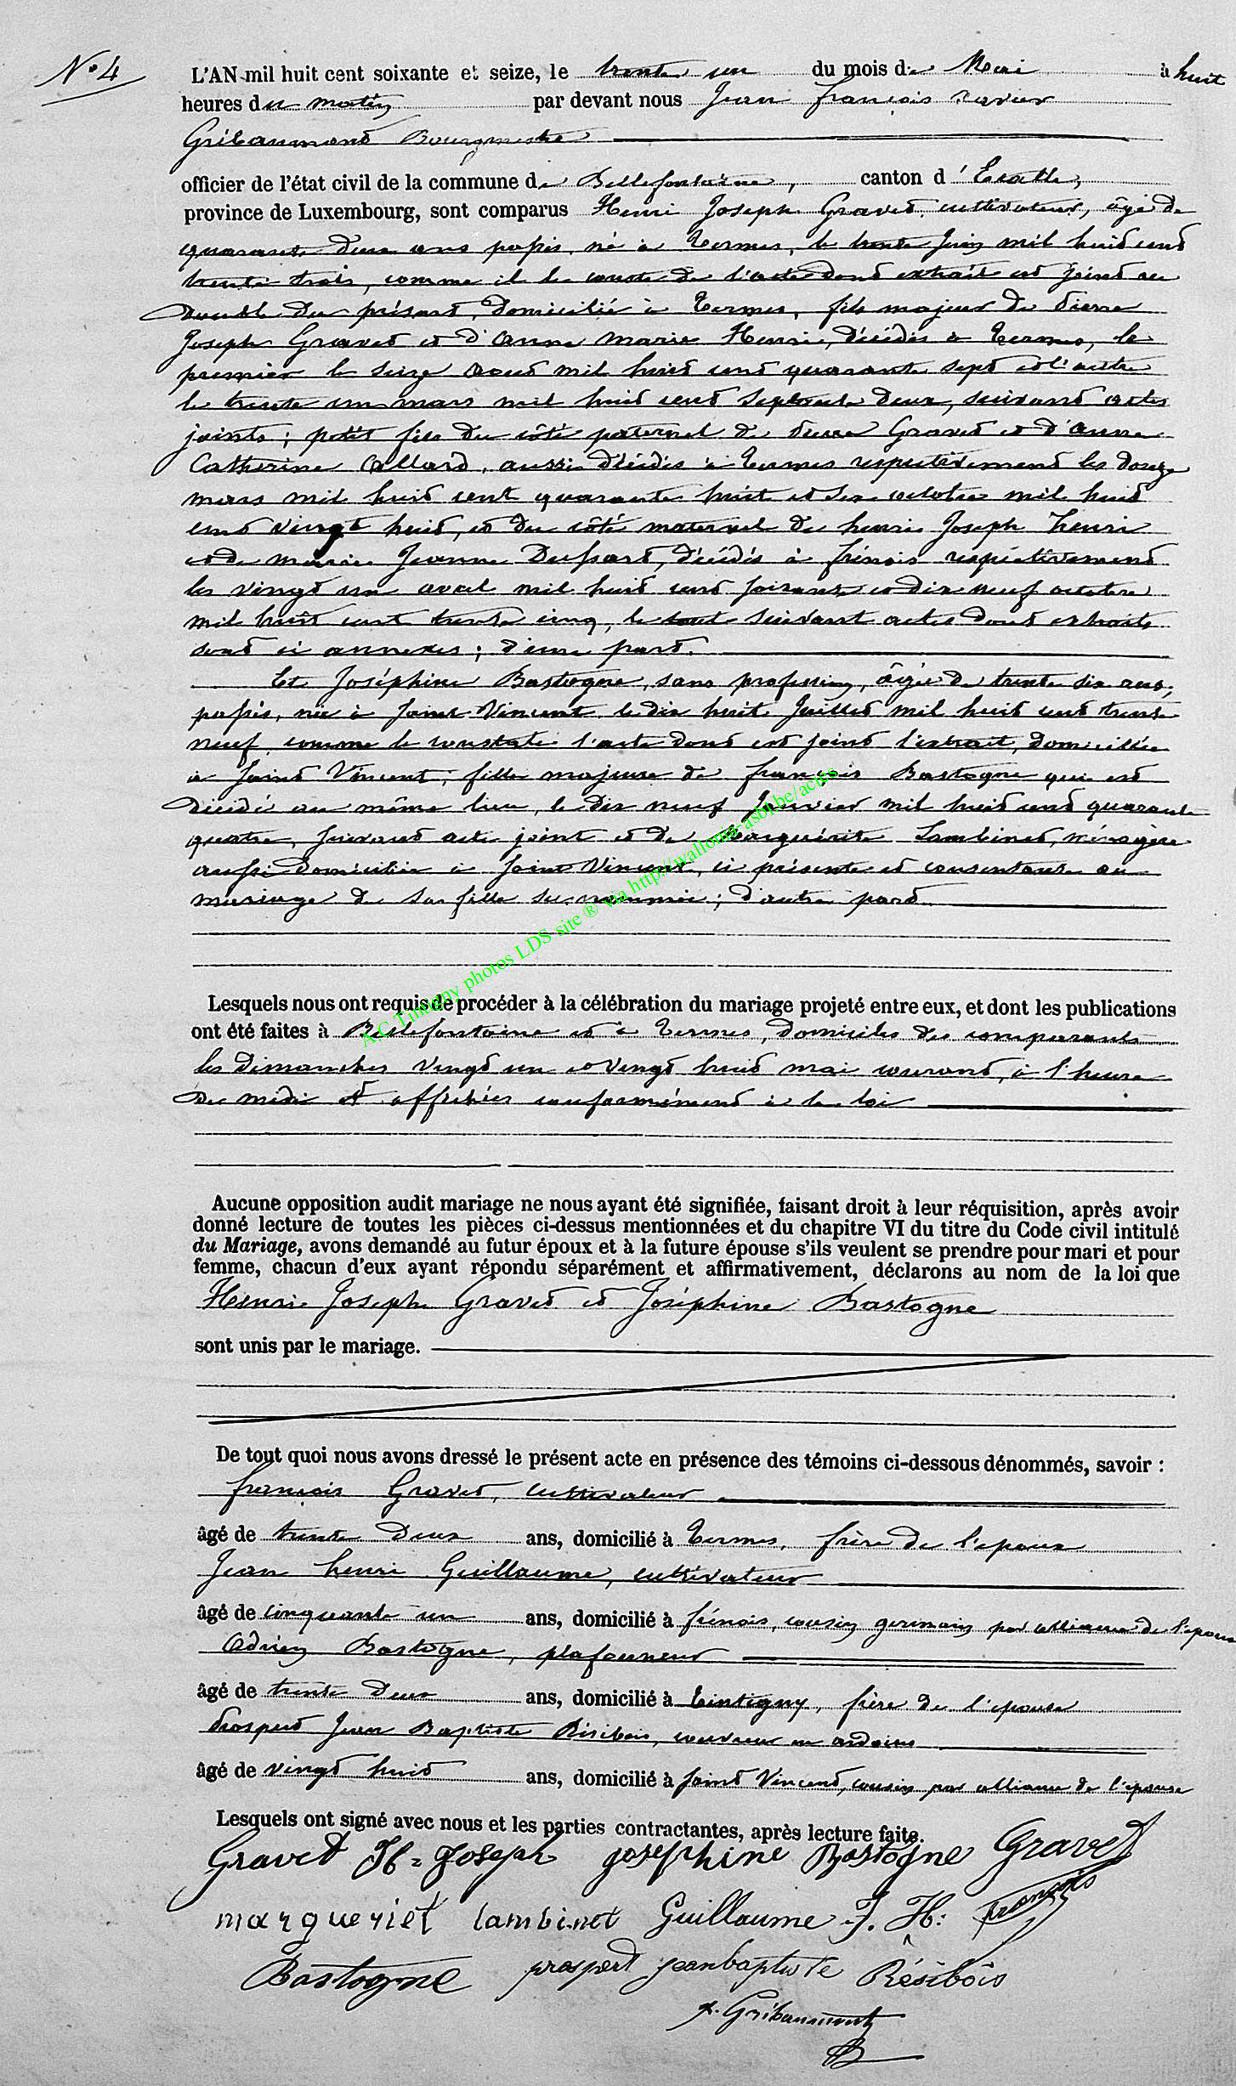 N° 4
L'AN mil huit cent soixante et seize, le trente un du mois de Mai à huit
heures du matin par devant nous Jean françois xavier
Gribaumont Bourgmestre
officier de l'état civil de la commune de Bellefontaine, canton d'Etalle,
province de Luxembourg, sont comparus Henri Joseph Gravet cultivateur, âgé de
quarante deux ans passés, né à Termes, le trente Juin mil huit cent
trente trois, comme il le conste de l'acte dont extrait est joint au
double du présent, domicilié à Termes, fils majeur de Pierre
Joseph Gravet et d'Anne Marie Henri, décédés à Termes, le
premier le seize Aout mil huit cent quarante sept et l'autre
le trente un mars mil huit cent septante deux, suivant actes
joints; petit fils du côté paternel de Pierre Gravet et d'Anne
Catherine Allard, aussi décédés à Termes respectivement les douze
mars mil huit cent quarante huit et six octobre mil huit
cent vingt huit, et du côté maternel de henri Joseph henri
et de Marie Jeanne Dussart, décédés à frénois respectivement
les vingt un avril mil huit cent soixante et dix neuf octobre
mil huit cent trente cinq, le tout suivant actes dont extraits
sont ci annexés; d'une part.
Et Joséphine Bastogne, sans profession, âgée de trente six ans,
passés, née à Saint Vincent le dix huit Juillet mil huit cent trente
neuf, comme le constate l'acte dont est joint l'extrait, domiciliée
à Saint Vincent, fille majeure de françois Bastogne qui est
décédé au même lieu, le dix neuf Janvier mil huit cent quarante
quatre, suivant acte joint et de Marguerite Lambinet, ménagère
aussi domiciliée à Saint Vincent, ci présente et consentante au
mariage de sa fille susnommée; d'autre part.
A.C. Timigny photos LDS site ® via http://wallonia-asbl.be/actes
Lesquels nous ont requis de procéder à la célébration du mariage projeté entre eux, et dont les publications
ont été faites à Bellefontaine et à Termes, domiciles des comparants
les Dimanches vingt un et vingt huit mai courant, à l'heure
de midi et affichées conformément à la loi
Aucune opposition audit mariage ne nous ayant été signifiée, faisant droit à leur réquisition, après avoir
donné lecture de toutes les pièces ci-dessus mentionnées et du chapitre VI du titre du Code civil intitulé
du Mariage, avons demandé au futur époux et à la future épouse s'ils veulent se prendre pour mari et pour
femme, chacun d'eux ayant répondu séparément et affirmativement, déclarons au nom de la loi que
Henri Joseph Gravet et Joséphine Bastogne
sont unis par le mariage.
De tout quoi nous avons dressé le présent acte en présence des témoins ci-dessous dénommés, savoir :
françois Gravet, cultivateur
âgé de trente deux ans, domicilié à Termes, frère de l'époux
Jean henri Guillaume, cultivateur
âgé de cinquante un ans, domicilié à frénois, cousin germain par alliance de l'époux
Adrien Bastogne, plafonneur
âgé de trente deux ans, domicilié à Tintigny, frère de l'épouse
Prospert Jean Baptiste Résibois, couvreur en ardoises
âgé de vingt huit ans, domicilié à Saint Vincent, cousin par alliance de l'épouse
Lesquels ont signé avec nous et les parties contractantes, après lecture faite.
Gravet H= Joseph josephine Bastogne Gravet
margueriet lambinet Guillaume J. H: françois
Bastogne prospert jeanbaptiste Résibois
x. Gribaumont